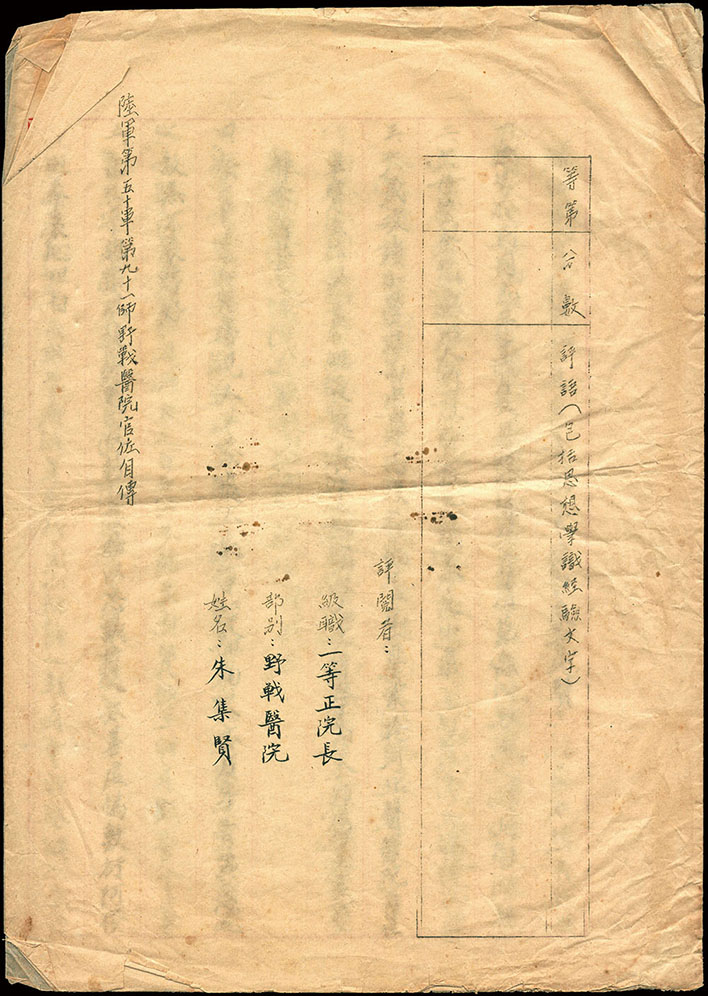 等第
分數
評語（包括思想學識經驗文字）
評閱者：
級職：一等正院長
部別：野戰醫院
姓名：朱集賢
陸軍第五十軍第九十一師野戰醫院官佐自傳